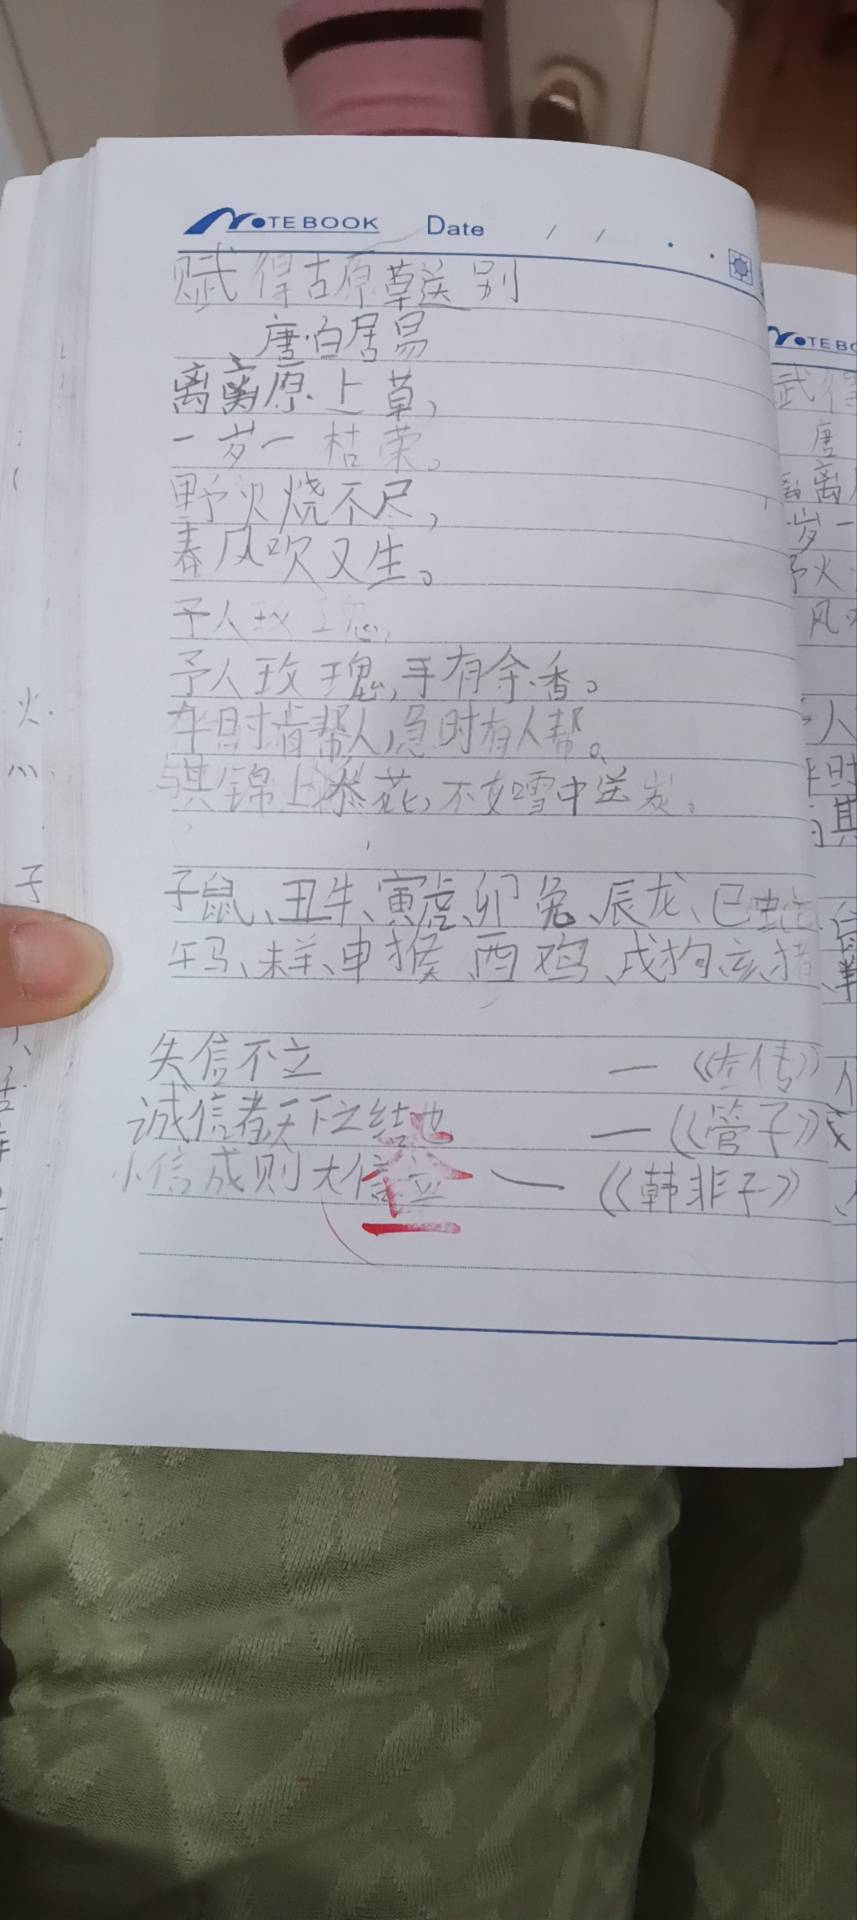 NOTEBOOK Date / /
赋得古原草送别
唐·白居易
离离原上草,
一岁一枯荣。
野火烧不尽,
春风吹又生。
予人玫瑰,
予人玫瑰,手有余香。
平时肯帮人,急时有人帮。
与其锦上添花,不如雪中送炭。
子鼠、丑牛、寅虎、卯兔、辰龙、巳蛇
午马、未羊、申猴、酉鸡、戌狗、亥猪
失信不立 —《左传》
诚信者天下之结也 —《管子》
小信成则大信立 —《韩非子》